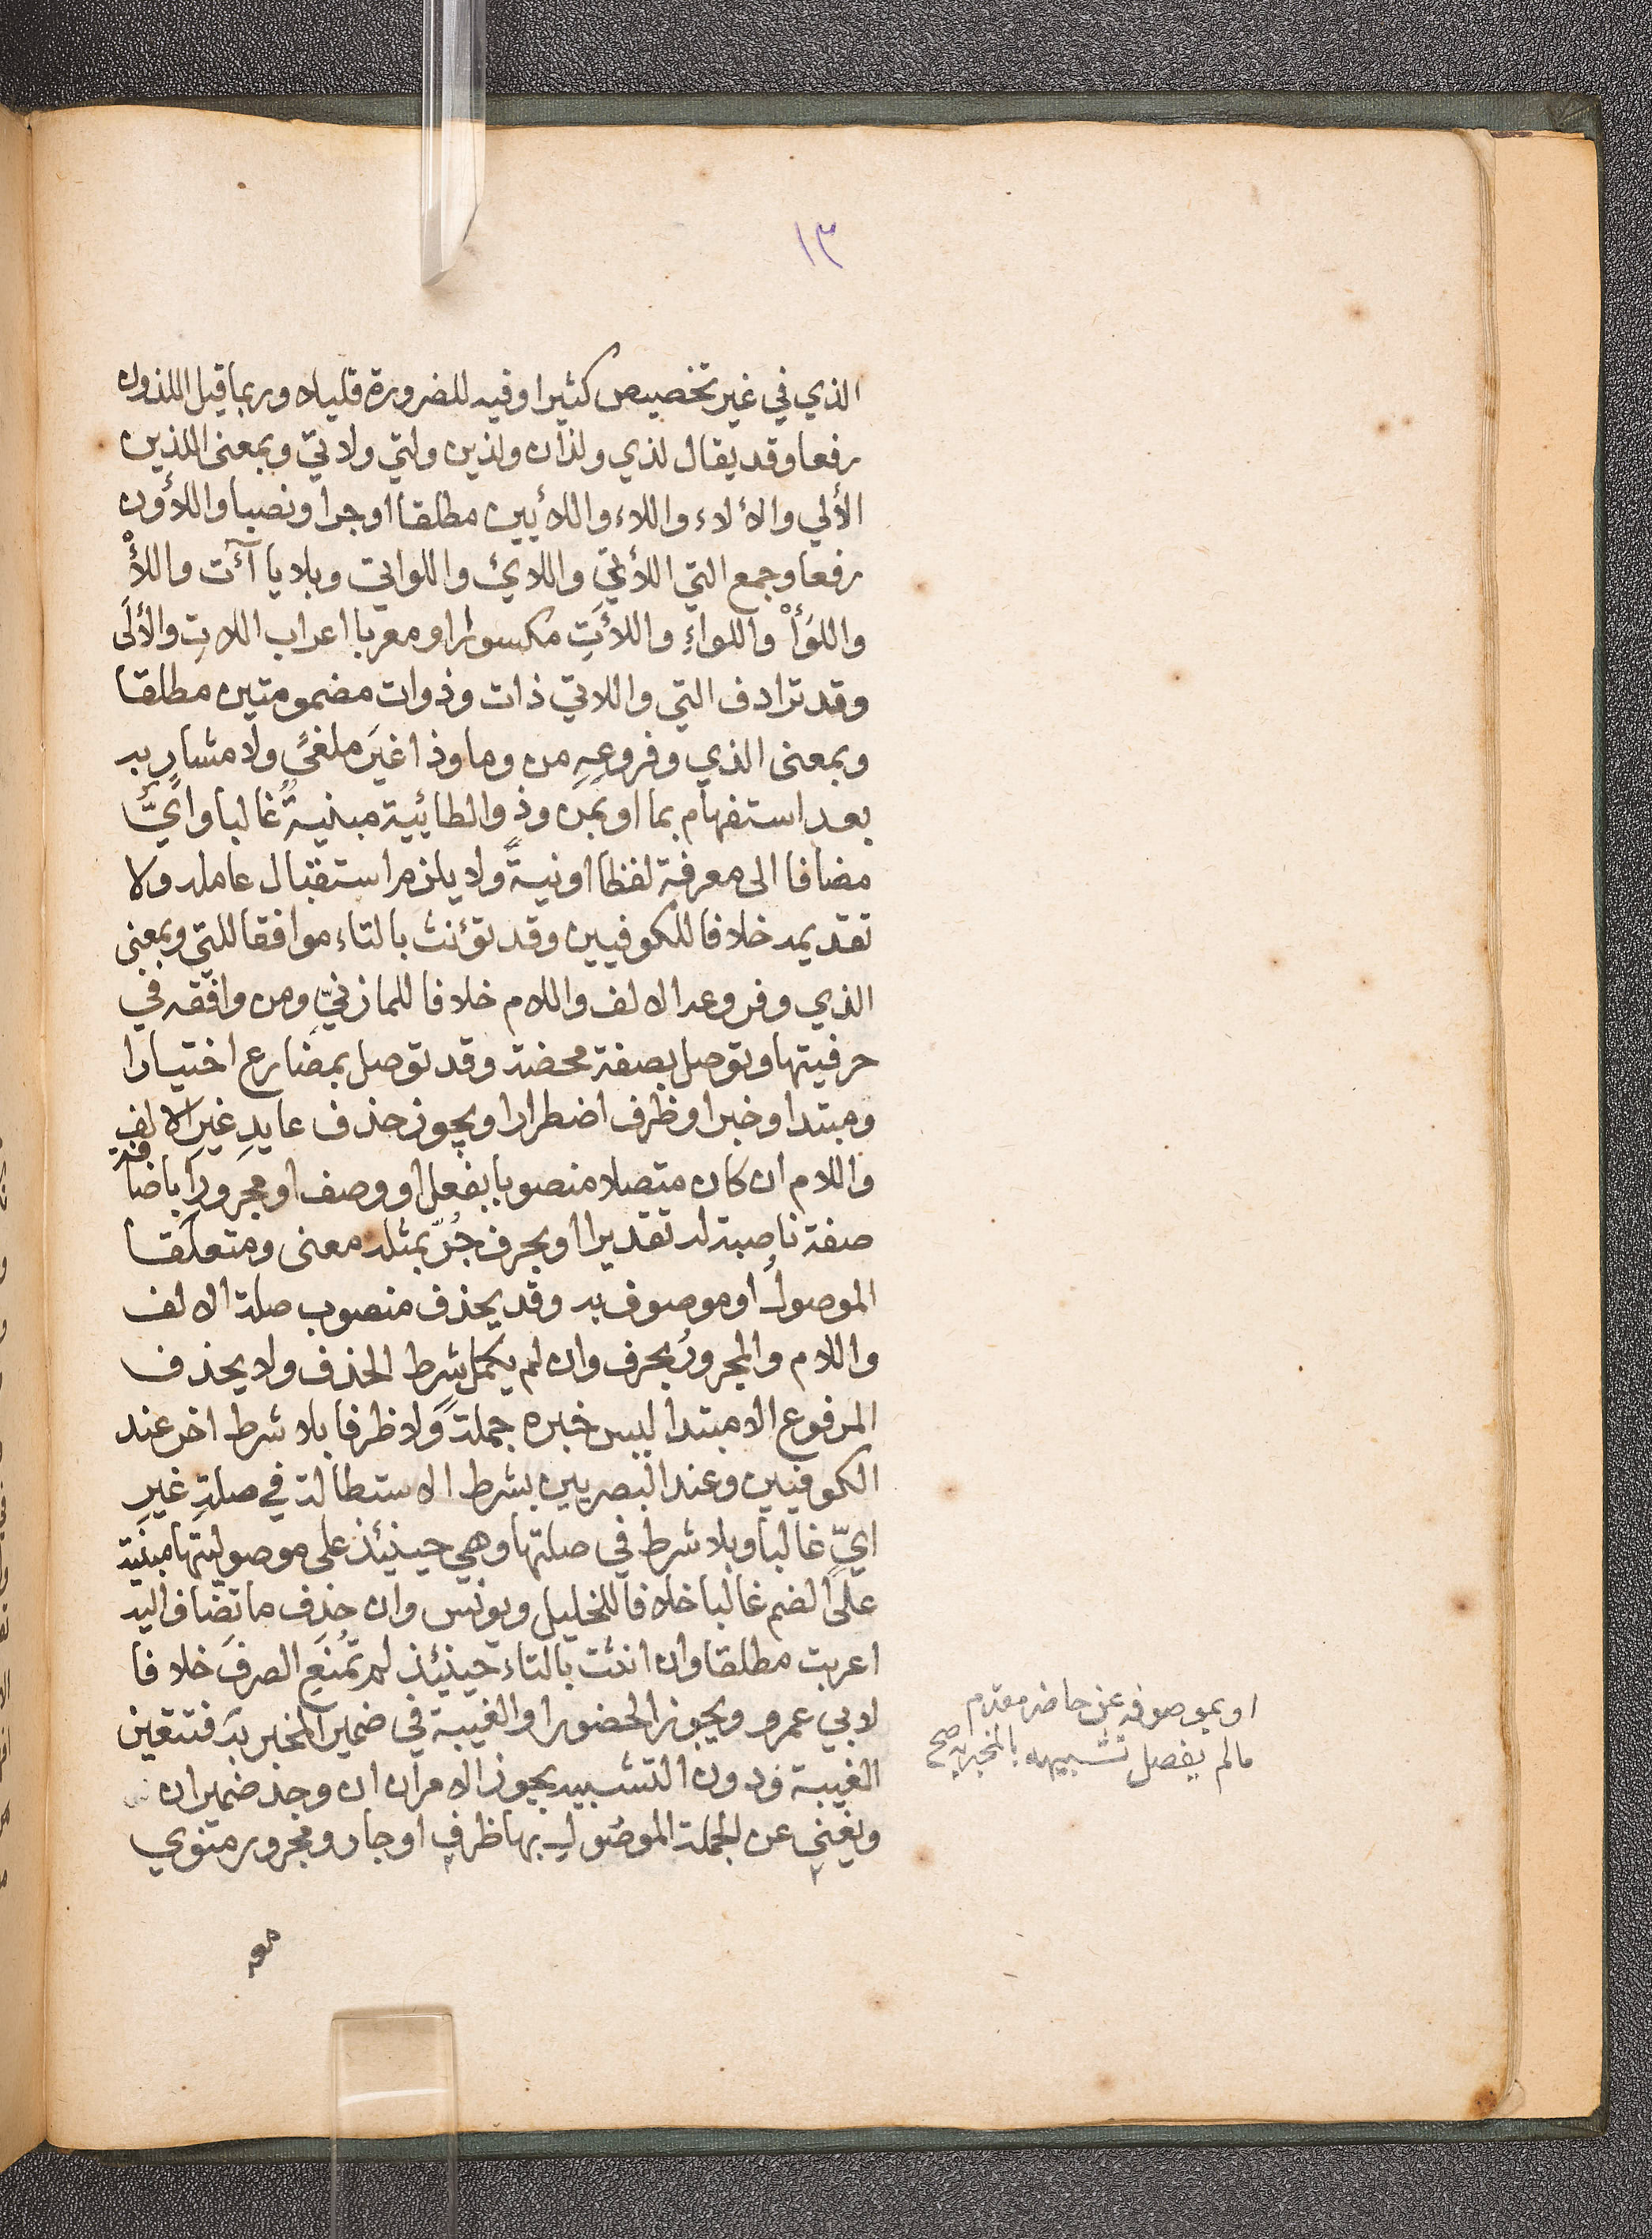 ١٣
الذي في غير تخصيص كثيرا وفيه للضرورة قليلا وربما قيل اللذون
رفعا وقد يقال لذي ولذان ولذين ولتي ولاتي وبمعنى الذين
الألي والألاء واللاء واللائيين مطلقا او جرا ونصبا واللاؤن
رفعا وجمع التي اللاتي واللائ واللواتي وبلا يا آت واللأْ
واللوَأْ واللواءِ واللاَّتِ مكسورا او معربا اعراب اللات والأُلَى
وقد ترادف التي واللاتي ذات وذوات مضمومتين مطلقا
وبمعنى الذي وفروعِهِ من وما وذا غيرَ ملغىً ولا مشارٍ به
بعد استفهام بما او بمن وذو الطائية مبنيةً غالبا وايٌّ
مضافا الى معرفة لفظا او نيةً ولا يلزم استقبال عامله ولا
تقديمه خلافا للكوفيين وقد تؤنث بالتاء موافقا للتي وبمعنى
الذي وفروعه الالف واللام خلافا للمازنيّ ومن وافقه في
حرفيتها وتوصل بصفة محضة وقد توصل بمضارع اختيارا
ومبتدا وخبر او ظرف اضطرارا ويجوز حذف عايدِ غيرِ الالف
واللام ان كان متصلا منصوبا بفعل او وصف او مجرورا باضافة
صفة ناصبة له تقديرا او بحرف جُرّ بمثله معنى ومتعلقا
الموصولُ او موصوف به وقد يحذف منصوب صلة الالف
واللام والمجرورُ بحرف وان لم يكمل شرط الحذف ولا يحذف
المرفوع الا مبتدا ليس خبره جملةً ولا ظرفا بلا شرط اخر عند
الكوفيين وعند البصريين بشرط الاستطالة في صلةِ غيرِ
ايٍّ غالبا وبلا شرط في صلتها وهي حينئذ على موصوليتها مبنية
على الضم غالبا خلافا للخليل ويونس وان حذف ما تضاف اليه
اعربت مطلقا وان انثت بالتاء حينئذ لم تمنع الصرفَ خلافا
لابي عمرو ويجوز الحضور او الغيبة في ضمير المخبر به فتتعين
الغيبة ودون التشبيه يجوز الامران ان وجد ضميران
ويغني عن الجملة الموصول بها ظرف او جار ومجرور منوي
او بموصوفه عن حاضر مقدم
مالم يفصل تشبيهه بالمخبر به صح
معه